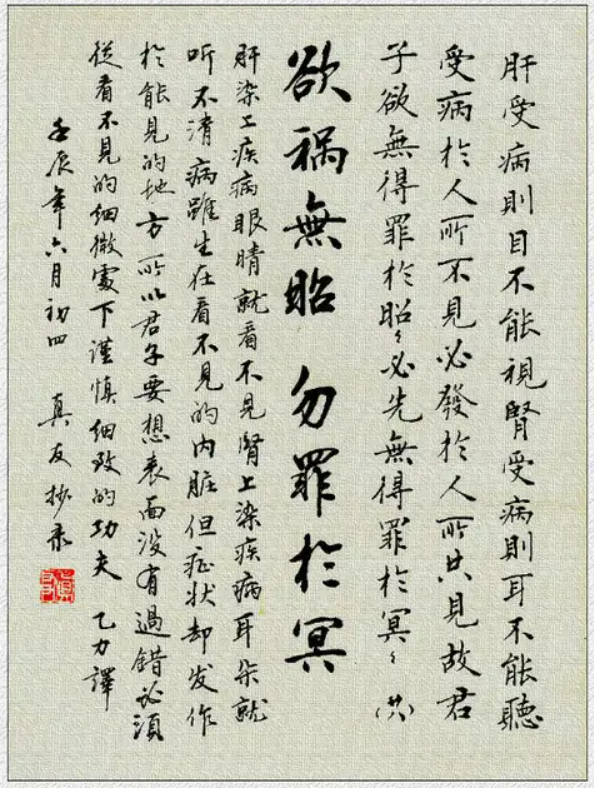 肝受病則目不能視腎受病則耳不能聽
受病於人所不見必發於人所共見故君
子欲無得罪於昭〻必先無得罪於冥〻(廿)
欲禍無昭 勿罪於冥
肝染上疾病眼睛就看不見腎上染疾病耳朵就
听不清病雖生在看不見的内脏但症状却发作
於能見的地方所以君子要想表面没有過錯必须
從看不見的细微處下谨慎细致的功夫 乙力譯
壬辰年六月初四 真友抄录